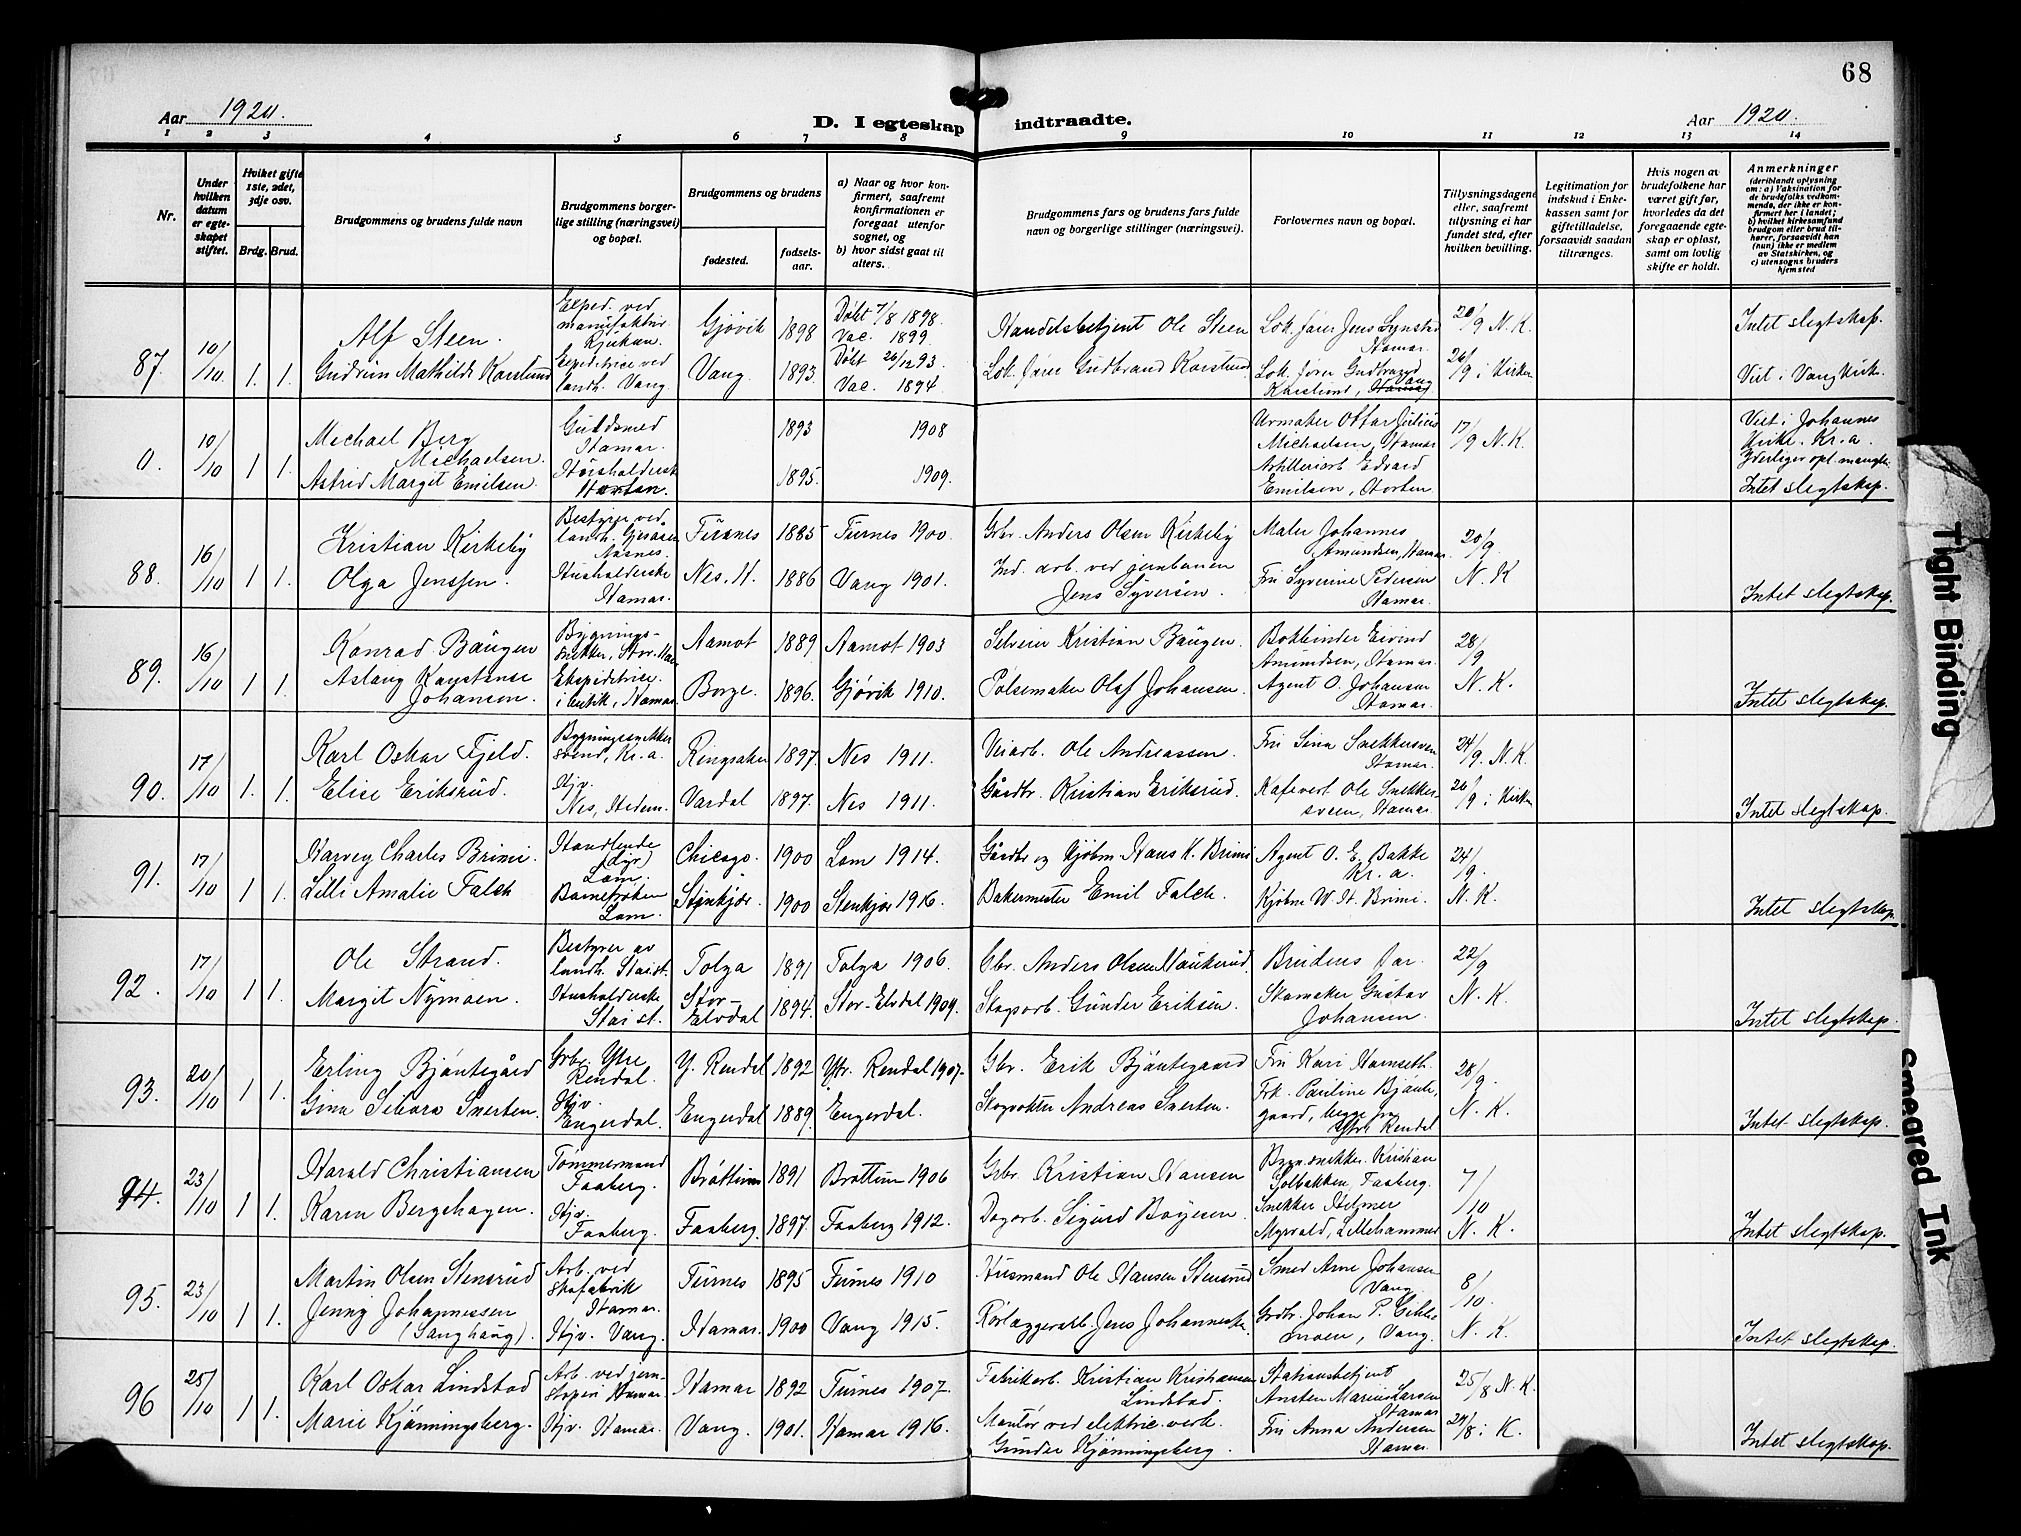 68
Aar 1920.
D. I egteskap indtraadte.
Aar 1920.
1 2 3 4 5 6 7 8 9 10 11 12 13 14
Nr.
Under hvilken datum er egteskapet stiftet.
Hvilket gifte 1ste, 2det, 3dje osv.
Brdg. Brud.
Brudgommens og brudens fulde navn
Brudgommens borgerlige stilling (næringsvei) og bopæl.
Brudgommens og brudens
fødested.
fødselsaar.
a) Naar og hvor konfirmert, saafremt konfirmationen er foregaat utenfor sognet, og
b) hvor sidst gaat til alters.
Brudgommens fars og brudens fars fulde navn og borgerlige stillinger (næringsvei).
Forlovernes navn og bopæl.
Tillysningsdagene eller, saafremt tillysning ei har fundet sted, efter hvilken bevilling.
Legitimation for indskud i Enkekassen samt for giftetilladelse, forsaavidt saadan tiltrænges.
Hvis nogen av brudefolkene har været gift før, hvorledes da det foregaaende egteskap er opløst, samt om lovlig skifte er holdt.
Anmerkninger
(deriblandt oplysning om: a) Vaksination for de brudefolks vedkommende, der ikke er konfirmert her i landet;
b) hvilket kirkesamfund brudgom eller brud tilhører, forsaavidt han (hun) ikke er medlem av Statskirken, og
c) utensogns bruders hjemsted
87. 10/10. 1. 1.
Alf Steen.
Exped. ved manufaktur. Rjukan.
Gjøvik 1898
Døbt 7/8 1898. Vac. 1899.
Handelsbetjent Ole Steen
Lok. fører Jens Synstad Hamar.
20/9 N. K.
Intet slegtskap.
Gudrun Mathilde Karslund
Expeditrice ved landh. Vang.
Vang. 1893.
Døbt 26/12 93. Vac. 1894.
Lok. fører Gudbrand Karslund.
Lok. fører Gudbrand Karslund, Vang
26/9 i Kirken
Viet i Vang Kirke.
0. 10/10 1 1.
Michael Berg Michaelsen.
Guldsmed Hamar.
1893
1908
Urmaker Ottar Julius Michaelsen, Hamar
17/9 N. K.
Viet i Johannes Kirke. Kr.a.
Astrid Margit Emilsen.
Husholderske Horten.
1895.
1909.
Artilleriarb. Edvard Emilsen, Horten
Yderliger opl. mangler.
Intet slegtskap.
88. 16/10 1 1.
Kristian Kirkeby
Furnes 1885
Furnes 1900.
Gbr. Anders Olsen Kirkeby
Maler Johannes Amundsen, Hamar.
20/9.
Olga Jenssen.
Husholderske Hamar.
Nes. H. 1886
Vang 1901.
Ind. arb. ved jernbanen Jens Syversen.
Fru Syverine Pedersen Hamar.
N. K
Intet slegtskap.
89. 16/10 1 1.
Konrad Baugen
Bygningssnekker,
Aamot 1889
Aamot 1903
Selveier Kristian Baugen.
Bokbinder Eivind Amundsen, Hamar.
28/9
Aslaug Konstanse Johansen.
Ekspeditrice i butik, Hamar.
Borge. 1896.
Gjøvik 1910.
Pølsemaker Olaf Johansen.
Agent O. Johansen Hamar.
N. K.
Intet slegtskap.
90. 17/10 1. 1.
Karl Oskar Fjeld.
Bygningssnekkersvend, Kr.a.
Ringsaker 1897.
Nes 1911.
Veiarb. Ole Andreassen.
Fru Lina Snekkersveen Hamar.
24/9. N. K.
Elise Eriksrud.
Hjv. Nes, Hedem.
Vardal 1897.
Nes 1911.
Gårdbr. Kristian Eriksrud.
Kafevert Ole Snekkersveen, Hamar.
26/9 i Kirken
Intet slegtskap.
91. 17/10 1 1.
Harvey Charles Brimi.
Handlende Lom.
Chicago. 1900
Lom 1914.
Gårdbr og Kjøbm. Hans K. Brimi
Agent O. E. Bakke Kr. a.
24/9.
Lilli Amalie Falch
Barnefrøken Lom.
Stenkjær. 1900
Stenkjær 1916.
Bakermester Emil Falch.
Kjøbm W. H. Brimi.
N. K.
Intet slegtskap.
92. 17/10 1 1.
Ole Strand.
Bestyrer av landh. Stai st.
Tolga 1891
Tolga 1906.
Gbr. Anders Olsen
Brudens far.
22/9
Margit Nymoen.
Husholderske Stai st.
Stor-Elvdal 1894.
Stor-Elvdal 1909.
Skogsarb. Gunder Eriksen.
Skomaker Gustav Johansen.
N. K.
Intet slegtskap.
93. 20/10 1 1.
Erling Bjøntegård
Grbr. Ytre Rendal.
Y. Rendal 1892
Ytr. Rendal 1907.
Gbr. Erik Bjøntegaard
Fru Kari Hamseth.
28/9.
Gina Sibora Snerten.
Hjv. Engerdal.
Engerdal 1889.
Engerdal.
Skogvokter Andreas Snerten.
Frk. Pauline Bjøntegaard, begge fra Ytre Rendal
N. K.
Intet slegtskap.
94. 23/10 1 1.
Harald Christiansen
Tømmermand Faaberg.
Brøttum 1891
Brøttum 1906
Grbr. Kristian Hansen
Bygn.snekker. Kristian Solbakken, Faaberg.
7/10
Karen Bergehagen.
Hjv. Faaberg.
Faaberg. 1897.
Faaberg 1912.
Dagarb. Sigurd Boyesen.
Snekker Helmer Myrvold, Lillehammer
N. K.
Intet slegtskap.
95. 23/10 1 1.
Martin Olsen Stensrud
Arb. ved Skofabrik Hamar.
Furnes 1895
Furnes 1910
Husmand Ole Hansen Stensrud
Smed Arne Johansen Vang.
8/10.
Jenny Johannessen
Hjv. Vang.
Hamar. 1900
Vang 1915.
Rørlæggerarb. Jens Johannessen.
Grdbr. Johan P. moen, Vang.
N. K.
Intet slegtskap.
96 25/10 1 1.
Karl Oskar Lindstad
Arb. ved jernstøperi Hamar
Hamar 1892
Furnes 1907.
Fabrikarb. Kristian Kristiansen Lindstad.
Stationsbetjent Ansten Marius Larsen Hamar
25/8 N. K.
Marie Kjønningsberg.
Hjv. Hamar.
Vang. 1901.
Hamar 1916.
Montør ved elektric. verk. Gunder Kjønningsberg.
Fru Anna Andersen Hamar.
29/8 i K.
Intet slegtskap.
Tight Binding
Smeared Ink